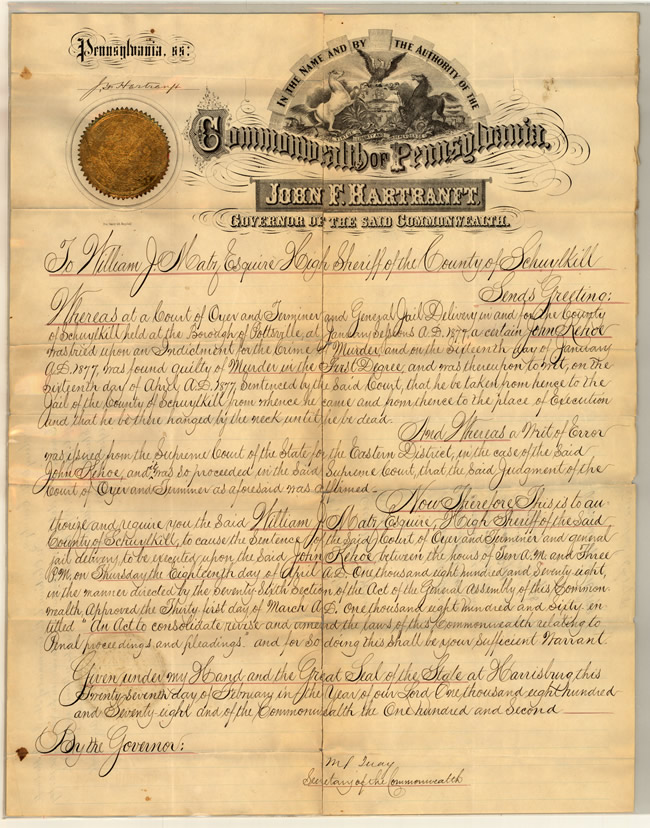 Pennsylvania, ss:
J. F. Hartranft
IN THE NAME AND BY THE AUTHORITY OF THE
Commonwealth of Pennsylvania,
JOHN F. HARTRANFT,
GOVERNOR OF THE SAID COMMONWEALTH.
To William J. Matz Esquire High Sheriff of the County of Schuylkill
Sends Greeting:
Whereas at a Court of Oyer and Terminer and General Jail Delivery in and for the County
of Schuylkill held at the Borough of Pottsville, at January Sessions A.D. 1877, a certain John Kehoe
was tried upon an Indictment for the Crime of Murder, and on the sixteenth day of January
A.D. 1877, was found guilty of Murder in the First Degree, and was thereupon to wit, on the
sixteenth day of April A.D. 1877, Sentenced by the Said Court, that he be taken from hence to the
Jail of the County of Schuylkill from whence he came and from thence to the place of Execution
and that he be there hanged by the neck until he be dead.
And Whereas a Writ of Error
was issued from the Supreme Court of the State for the Eastern District, in the case of the Said
John Kehoe, and was so proceeded in the Said Supreme Court, that the Said Judgment of the
Court of Oyer and Terminer as aforesaid was affirmed.
Now Therefore This is to au-
thorize and require you the Said William J. Matz Esquire, High Sheriff of the Said
County of Schuylkill, to cause the Sentence of the Said Court of Oyer and Terminer and general
jail delivery to be executed upon the Said John Kehoe between the hours of Ten A.M. and Three
P.M. on Thursday the Eighteenth day of April A.D. One thousand eight hundred and Seventy eight,
in the manner directed by the Seventy Sixth Section of the Act of the General Assembly of this Common-
wealth Approved the Thirty first day of March A.D. One thousand eight hundred and Sixty en-
titled "An Act to consolidate revise and amend the laws of this Commonwealth relating to
Penal proceedings and pleadings" and for so doing this shall be your Sufficient Warrant.
Given under my Hand and the Great Seal of the State at Harrisburg this
Twenty seventh day of February in the Year of our Lord One thousand eight hundred
and Seventy-eight and of the Commonwealth the One hundred and Second
By the Governor:
M. S. Quay
Secretary of the Commonwealth